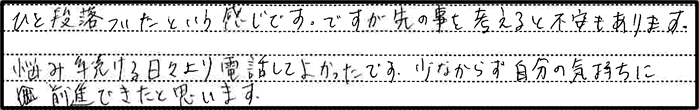 ひと段落ついたという感じです。ですが先の事を考えると不安もあります。
悩み続ける日々より電話してよかったです。少なからず自分の気持ちに
前進できたと思います。